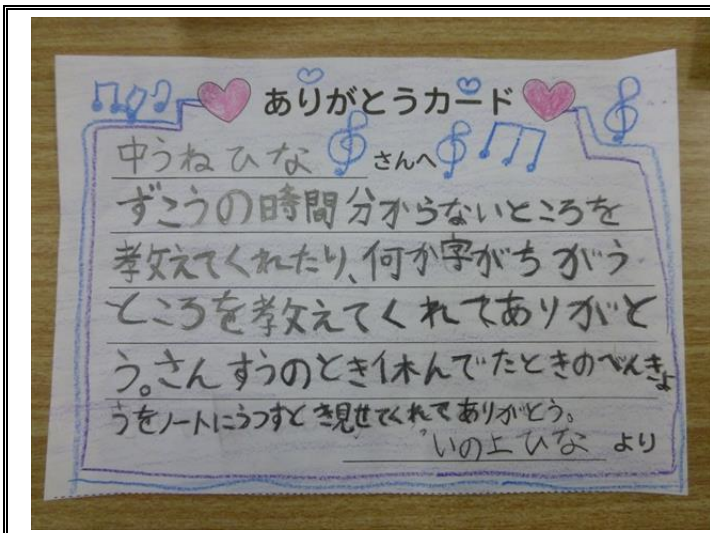 ありがとうカード
中うねひな さんへ
ずこうの時間分からないところを
教えてくれたり、何か字がちがう
ところを教えてくれてありがと
う。さんすうのとき休んでたときのべんきょ
うをノートにうつすとき見せてくれてありがとう。
いの上ひな より